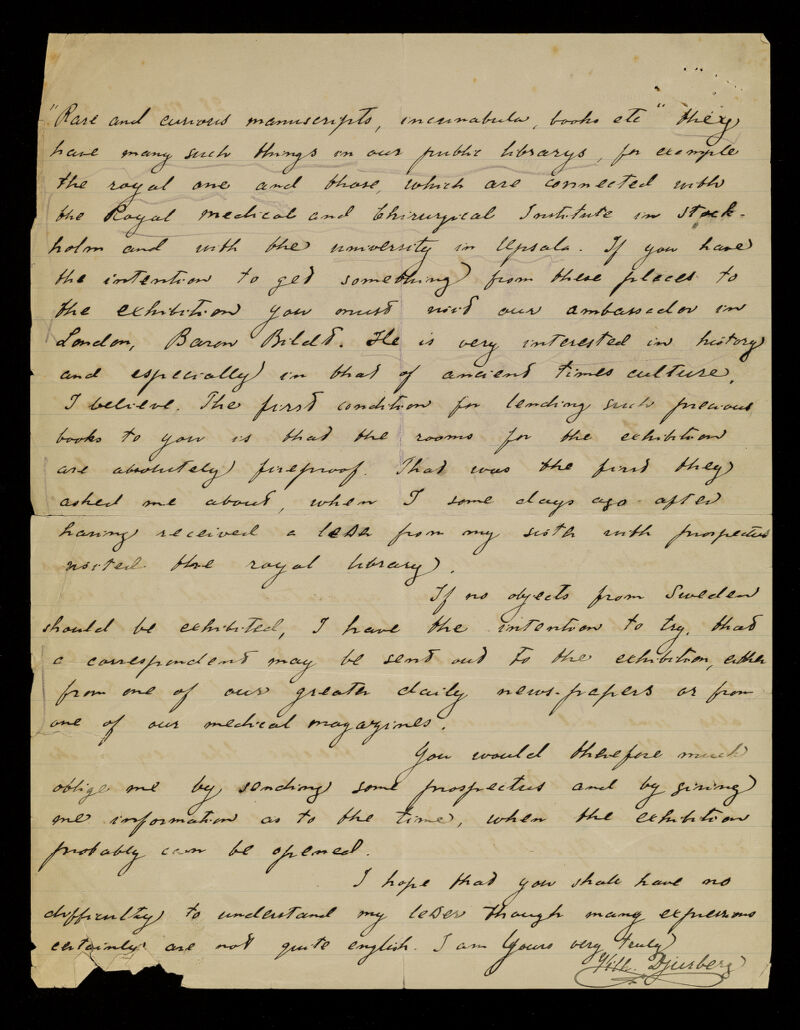 "Rare and curious manuscripts, incunabula, books etc" they
have many such things in our public librarys, for example
the royal one and those, which are connected with
the Royal medical and Chirurgical Institute in Stock-
holm and with the university in Upsala. If you have
the intention to get something from these places to
the exhibition you must visit our ambassador in
London, Baron Bildt. He is very interested in history
and especially in that of ancient times culture,
I believe. The first condition for lending such precious
books to you is that the rooms for the exhibition
are absolutely fireproof. That was the first they
asked me about, when I some days ago after
having received a letter from my sister with prospectus
visited the royal library.
If no objects from Sweden
should be exhibited, I have the intention to try, that
a correspondent may be sent out to the exhibition, either
from one of our greater daily news-papers or from
one of our medical magazines.
You would therefore much
oblige me by sending some prospectus and by giving
me information as to the time, when the exhibition
probably can be opened.
I hope that you shall have no
difficulty to understand my letter though many expressions
certainly are not quite english. I am Yours very truly
Vilh. Djurberg